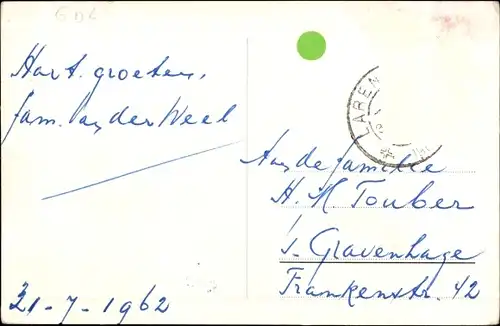 GDL
Hart. groeten,
fam. van der Weel
21-7-1962
LAREN
Aan de familie
H. M Touber
's Gravenhage
Frankenstr. 42